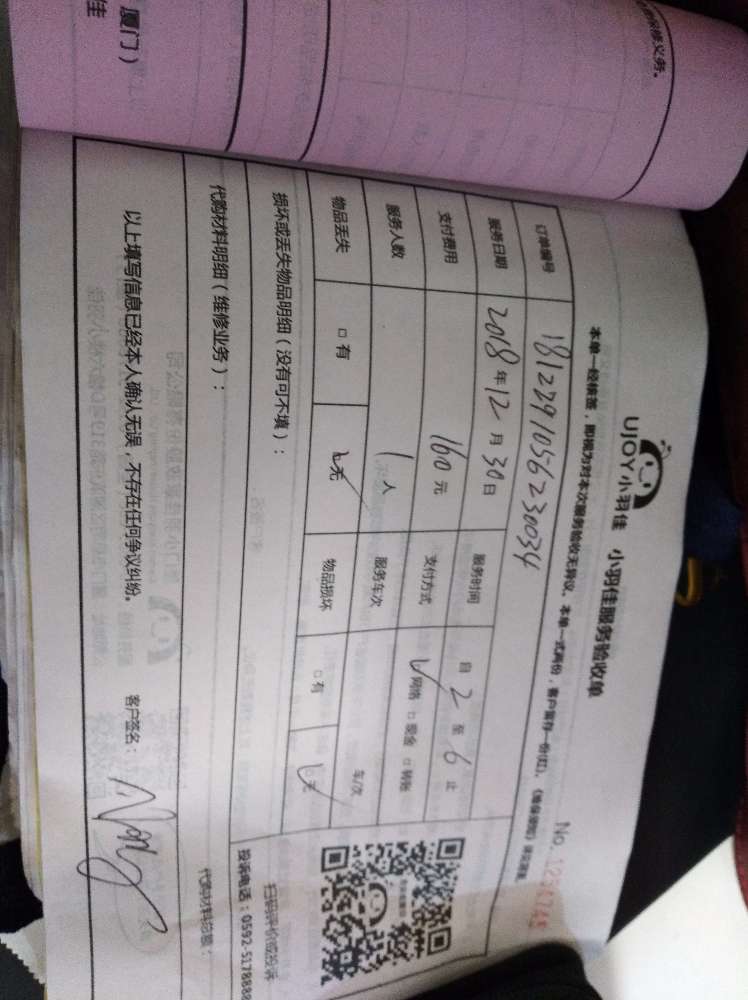 修义务。
厦门)
佳
UJOY小羽佳 小羽佳服务验收单
本单一经核签，即视为对本次服务验收无异议。本单一式两份，客户留存一份(红)。
No.
订单编号 1812291056230034
服务日期 2018年12月30日 服务时间 自2至6止
支付费用 160元 支付方式 ☑网络 □现金 □转账
服务人数 1人 服务车次 车/次
物品丢失 □有 ☑无 物品损坏 □有 ☑无
损坏或丢失物品明细（没有可不填）：
扫码评价或投诉
投诉电话：0592-5178888
代购材料明细（维修业务）：
代购材料总额：
以上填写信息已经本人确认无误，不存在任何争议纠纷。 客户签名：